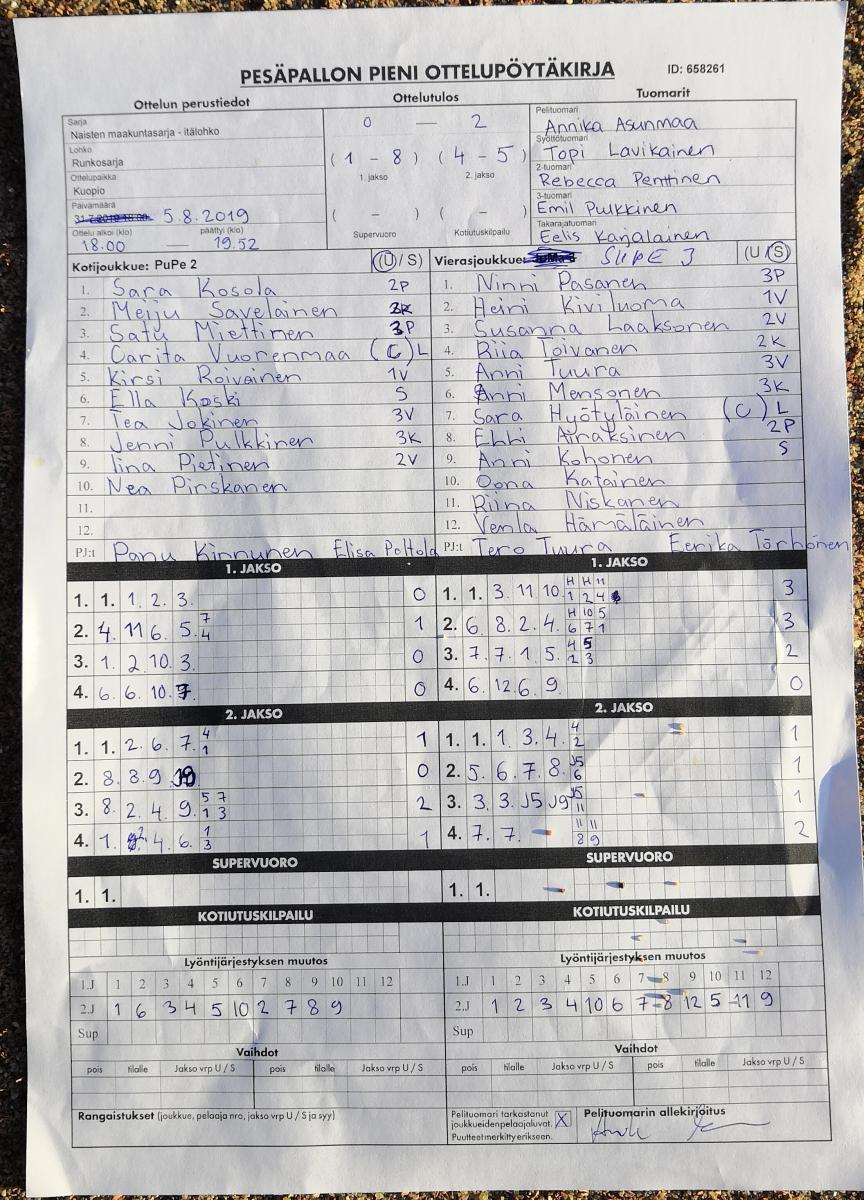 PESÄPALLON PIENI OTTELUPÖYTÄKIRJA ID: 658261
Ottelun perustiedot Ottelutulos Tuomarit
Sarja
Naisten maakuntasarja - itälohko
Lohko
Runkosarja
Ottelupaikka
Kuopio
Päivämäärä
5.8.2019
Ottelu alkoi (klo) päättyi (klo)
18.00 — 19.52
0 — 2
(1 - 8) (4 - 5)
1. jakso 2. jakso
( - ) ( - )
Supervuoro Kotiutuskilpailu
Pelituomari
Annika Asunmaa
Syöttötuomari
Topi Lavikainen
2-tuomari
Rebecca Penttinen
3-tuomari
Emil Pulkkinen
Takarajatuomari
Eelis Karjalainen
Kotijoukkue: PuPe 2 (U/S)
1. Sara Kosola 2P
2. Meiju Savelainen
3. Satu Miettinen 3P
4. Carita Vuorenmaa (C) L
5. Kirsi Roivainen 1V
6. Ella Koski S
7. Tea Jokinen 3V
8. Jenni Pulkkinen 3K
9. Iina Pietinen 2V
10. Nea Pirskanen
11.
12.
PJ:t Panu Kinnunen Elisa Peltola
Vierasjoukkue: SiiPe 3 (U/S)
1. Ninni Pasanen 3P
2. Heini Kiviluoma 1V
3. Susanna Laaksonen 2V
4. Riia Toivanen 2K
5. Anni Tuura 3V
6. Anni Mensonen 3K
7. Sara Hyötyläinen (C) L
8. Ehhi Airaksinen 2P
9. Anni Kohonen S
10. Oona Katainen
11. Riina Niskanen
12. Venla Hämäläinen
PJ:t Tero Tuura Eerika Törhönen
1. JAKSO
1. 1. 1. 2. 3. 0
2. 4. 11 6. 5. 7 4 1
3. 1. 2. 10. 3. 0
4. 6. 6. 10. 7. 0
1. JAKSO
1. 1. 3. 11 10. H H 11 1 2 4 3
2. 6. 8. 2. 4. H 10 5 6 7 1 3
3. 7. 7. 1. 5. 4 5 2 3 2
4. 6. 12. 6. 9. 0
2. JAKSO
1. 1. 2. 6. 7. 4 1 1
2. 8. 8. 9. 10 0
3. 8. 2. 4. 9. 5 7 1 3 2
4. 1. 2. 4. 6. 1 3 1
2. JAKSO
1. 1. 1. 3. 4. 4 2 1
2. 5. 6. 7. 8. J5 6 1
3. 3. 3. J5 J9 J5 11 1
4. 7. 7. 11 11 8 9 2
SUPERVUORO
1. 1.
SUPERVUORO
1. 1.
KOTIUTUSKILPAILU
KOTIUTUSKILPAILU
Lyöntijärjestyksen muutos
1.J 1 2 3 4 5 6 7 8 9 10 11 12
2.J 1 6 3 4 5 10 2 7 8 9
Sup
Lyöntijärjestyksen muutos
1.J 1 2 3 4 5 6 7 8 9 10 11 12
2.J 1 2 3 4 10 6 7 8 12 5 11 9
Sup
Vaihdot
pois tilalle Jakso vrp U / S pois tilalle Jakso vrp U / S
Vaihdot
pois tilalle Jakso vrp U / S pois tilalle Jakso vrp U / S
Rangaistukset (joukkue, pelaaja nro, jakso vrp U / S ja syy)
Pelituomari tarkastanut
joukkueiden pelaajaluvat. X
Puutteet merkitty erikseen.
Pelituomarin allekirjoitus